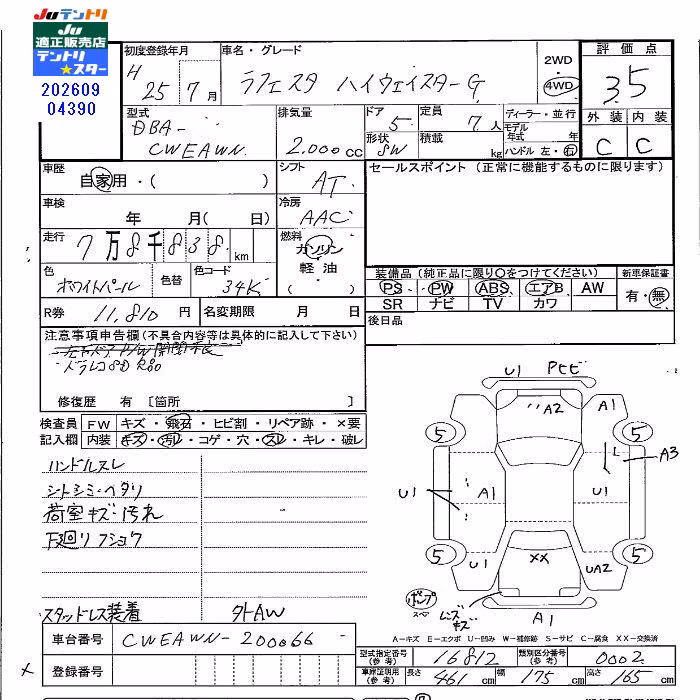 Juテントリ
Ju
適正販売店
テントリ
★スター
202609
04390
初度登録年月
H 25年 7月
車名・グレード
ラフェスタ ハイウェイスターG
2WD
・
4WD
評価点
3.5
外装 内装
C C
型式
DBA-
CWEAWN
排気量
2.000cc
ドア
5
形状
SW
定員
7人
積載
kg
ディーラー・並行
モデル年式 年
ハンドル 左・右
車歴
自家用・( )
シフト
AT
セールスポイント (正常に機能するものに限ります)
車検
年 月( 日)
冷房
AAC
走行
7万8千838km
燃料
ガソリン
軽油
色
ホワイトパール
色替
色コード
34K
装備品 (純正品に限り〇をつけてください)
PS PW ABS エアB AW
SR ナビ TV カワ
新車保証書
有・無
R券 11,810円
名変期限 月 日
後日品
注意事項申告欄 (不具合内容等は具体的に記入して下さい)
修復歴 有 〔箇所 〕
検査員記入欄
FW キズ・飛石・ヒビ割・リペア跡・×要
内装 キズ・汚レ・コゲ・穴・スレ・キレ・破レ
ハンドルスレ
シートシミ・ヘタリ
荷室キズ・汚れ
下廻リフショク
スタッドレス装着 外AW
U1 Pヒビ
A2 A1
5 5
L A3
U1 A1 U1
5 5
U1 XX UA2
ポンプ
レンズキズ
A1
A-キズ E-エクボ U-凹み W-補修跡 S-サビ C-腐食 XX-交換済
車台番号 CWEAWN-200066
登録番号
型式指定番号(参考) 16812
類別区分番号(参考) 0002
車庫証明用(参考) 長さ 461cm 幅 175cm 高さ 165cm